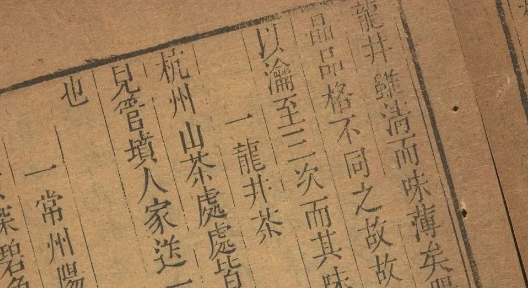 龍井雖清而味薄矣
品格不同之故故
以瀹至三次而其味
一龍井茶
杭州山茶處處皆
見管墳人家送一
也
一常州陽
深碧